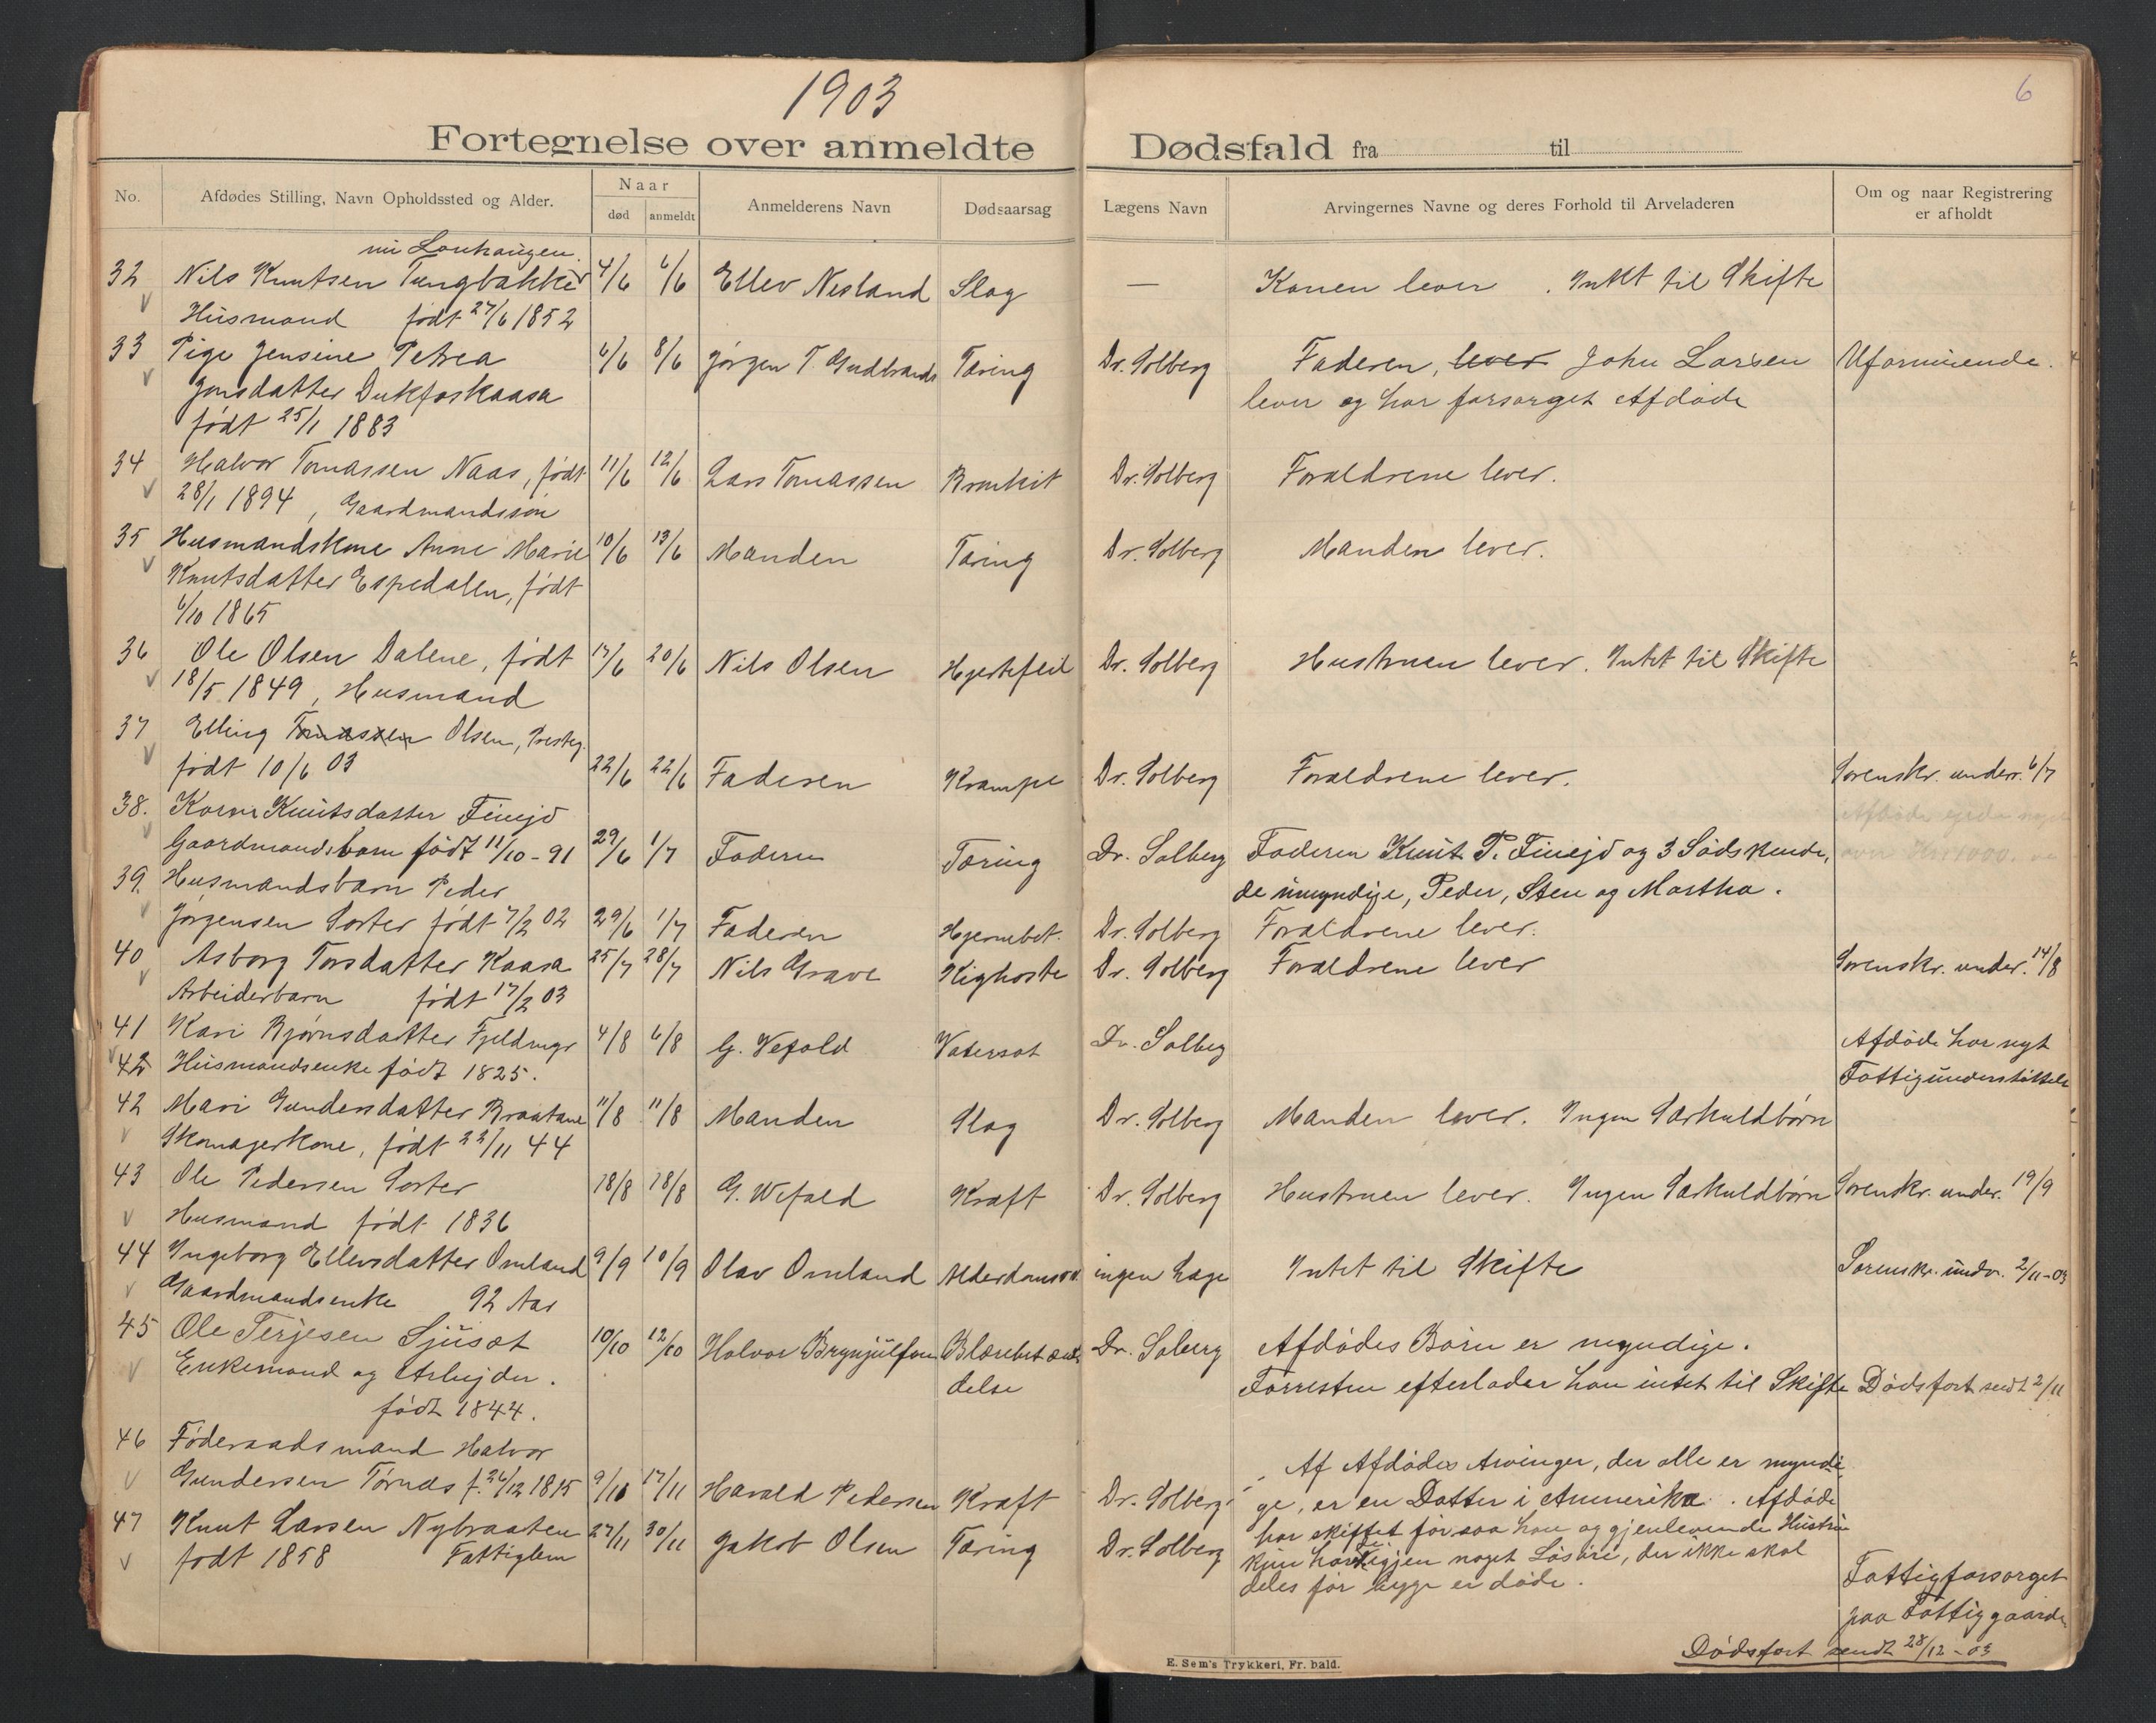 1903
6
Fortegnelse over anmeldte Dødsfald fra til
No. Afdødes Stilling, Navn Opholdssted og Alder. Naar død anmeldt Anmelderens Navn Dødsaarsag Lægens Navn Arvingernes Navne og deres Forhold til Arveladeren Om og naar Registrering er afholdt
32 Nils Knutsen Tungbakken 4/6 6/6 Ellev Nesland Slag — Konen lever . Intet til Skifte
Husmand født 27/6 1852
33 Pige Jensine Petrea 6/6 8/6 Jørgen T. Gudbrands Tæring Dr. Solberg Faderen, lever John Larsen Uformuende.
Jonsdatter Dukfoskaasa lever og har forsørget Afdøde
født 25/1 1883
34 Halvor Tomassen Naas, født 11/6 12/6 Lars Tomassen Bronkit Dr. Solberg Forældrene lever.
28/1 1894, Gaardmandssøn
35 Husmandskone Anne Marie 10/6 13/6 Manden Tæring Dr. Solberg Manden lever.
Knutsdatter Espedalen, født
6/10 1865
36 Ole Olsen Dalene, født 17/6 20/6 Nils Olsen Hjertefeil Dr. Solberg Hustruen lever. Intet til Skifte
18/5 1849, Husmand
37 Elling Tomassen Olsen, Presteg.
født 10/6 03 22/6 22/6 Faderen Krampe Dr. Solberg Forældrene lever. Sorenskr. underr. 6/7
38. Knutsdatter
Gaardmandsbarn født 11/10-91 29/6 1/7 Faderen Tæring Dr. Solberg Faderen Knut P. og 3 Sødskende,
39. Husmandsbarn Peder de umyndige, Peder, Sten og Martha.
Jørgensen Sorter født 7/2 02 29/6 1/7 Faderen Hjernebet. Dr. Solberg Forældrene lever.
40 Asborg Torsdatter Kaasa 25/7 28/7 Nils Grave Kighoste Dr. Solberg Forældrene lever Sorenskr. under. 14/8
Arbeiderbarn født 17/2 03
41 Kari Bjørnsdatter 4/8 6/8 G. Vefald Vatersot Dr. Solberg Afdøde har nyt
42 Husmandsenke født 1825. Fattigunderstøttelse
42 Mari Gundersdatter Braatane 11/8 11/8 Manden Slag Dr. Solberg Manden lever. Ingen Særkuldbørn
Skomagerkone, født 22/11 44
43 Ole Pedersen Sorter 18/8 18/8 G. Wefald Kræft Dr. Solberg Hustruen lever. Ingen Særkuldbørn Sorenskr. under. 19/9
Husmand født 1836
44 Ingeborg Ellevsdatter Omland 9/9 10/9 Olav Omland ingen Læge Intet til Skifte Sorenskr. undr. 2/11-03
Gaardmandsenke 92 Aar
45 Ole Terjesen Ljusat 10/10 12/10 Halvor Brynjulfsen Blærebetæn- Dr. Solberg Afdødes Børn er myndige.
Enkemand og Arbejder. delse Forresten efterlader han intet til Skifte Dødsfort sendt 2/11
født 1844.
46 Føderaadsmand Halvor Af Afdødes Arvinger, der alle er myndi-
Gundersen Tørnæs f. 26/12 1815 9/11 17/11 Harald Pedersen Kræft Dr. Solberg ge, er en Datter i Ammerika. Afdøde
har skiftet før saa han og gjenlevende Hustru
47 Knut Larsen Nybraaten 27/11 30/11 Jakob Olsen Tæring Dr. Solberg kun har igjen noget Løsøre, der ikke skal
født 1858 Fattiglem deles før begge er døde. Fattigforsørget
paa Fattiggaarden
Dødsfort sendt 28/12-03
E. Sem's Trykkeri, Fr. hald.